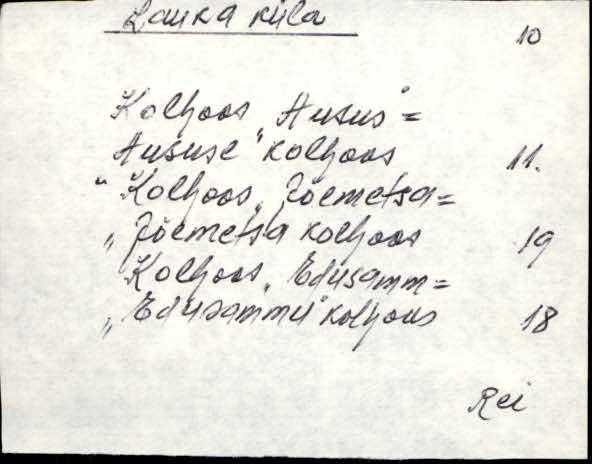 Lauka küla
10
Kolhoos „Ausus" =
Aususe" kolhoos 11.
"Kolhoos „Jõemetsa =
„Jõemetsa kolhoos 19
Kolhoos „Edusamm =
„Edusammu" kolhoos 18
Rei